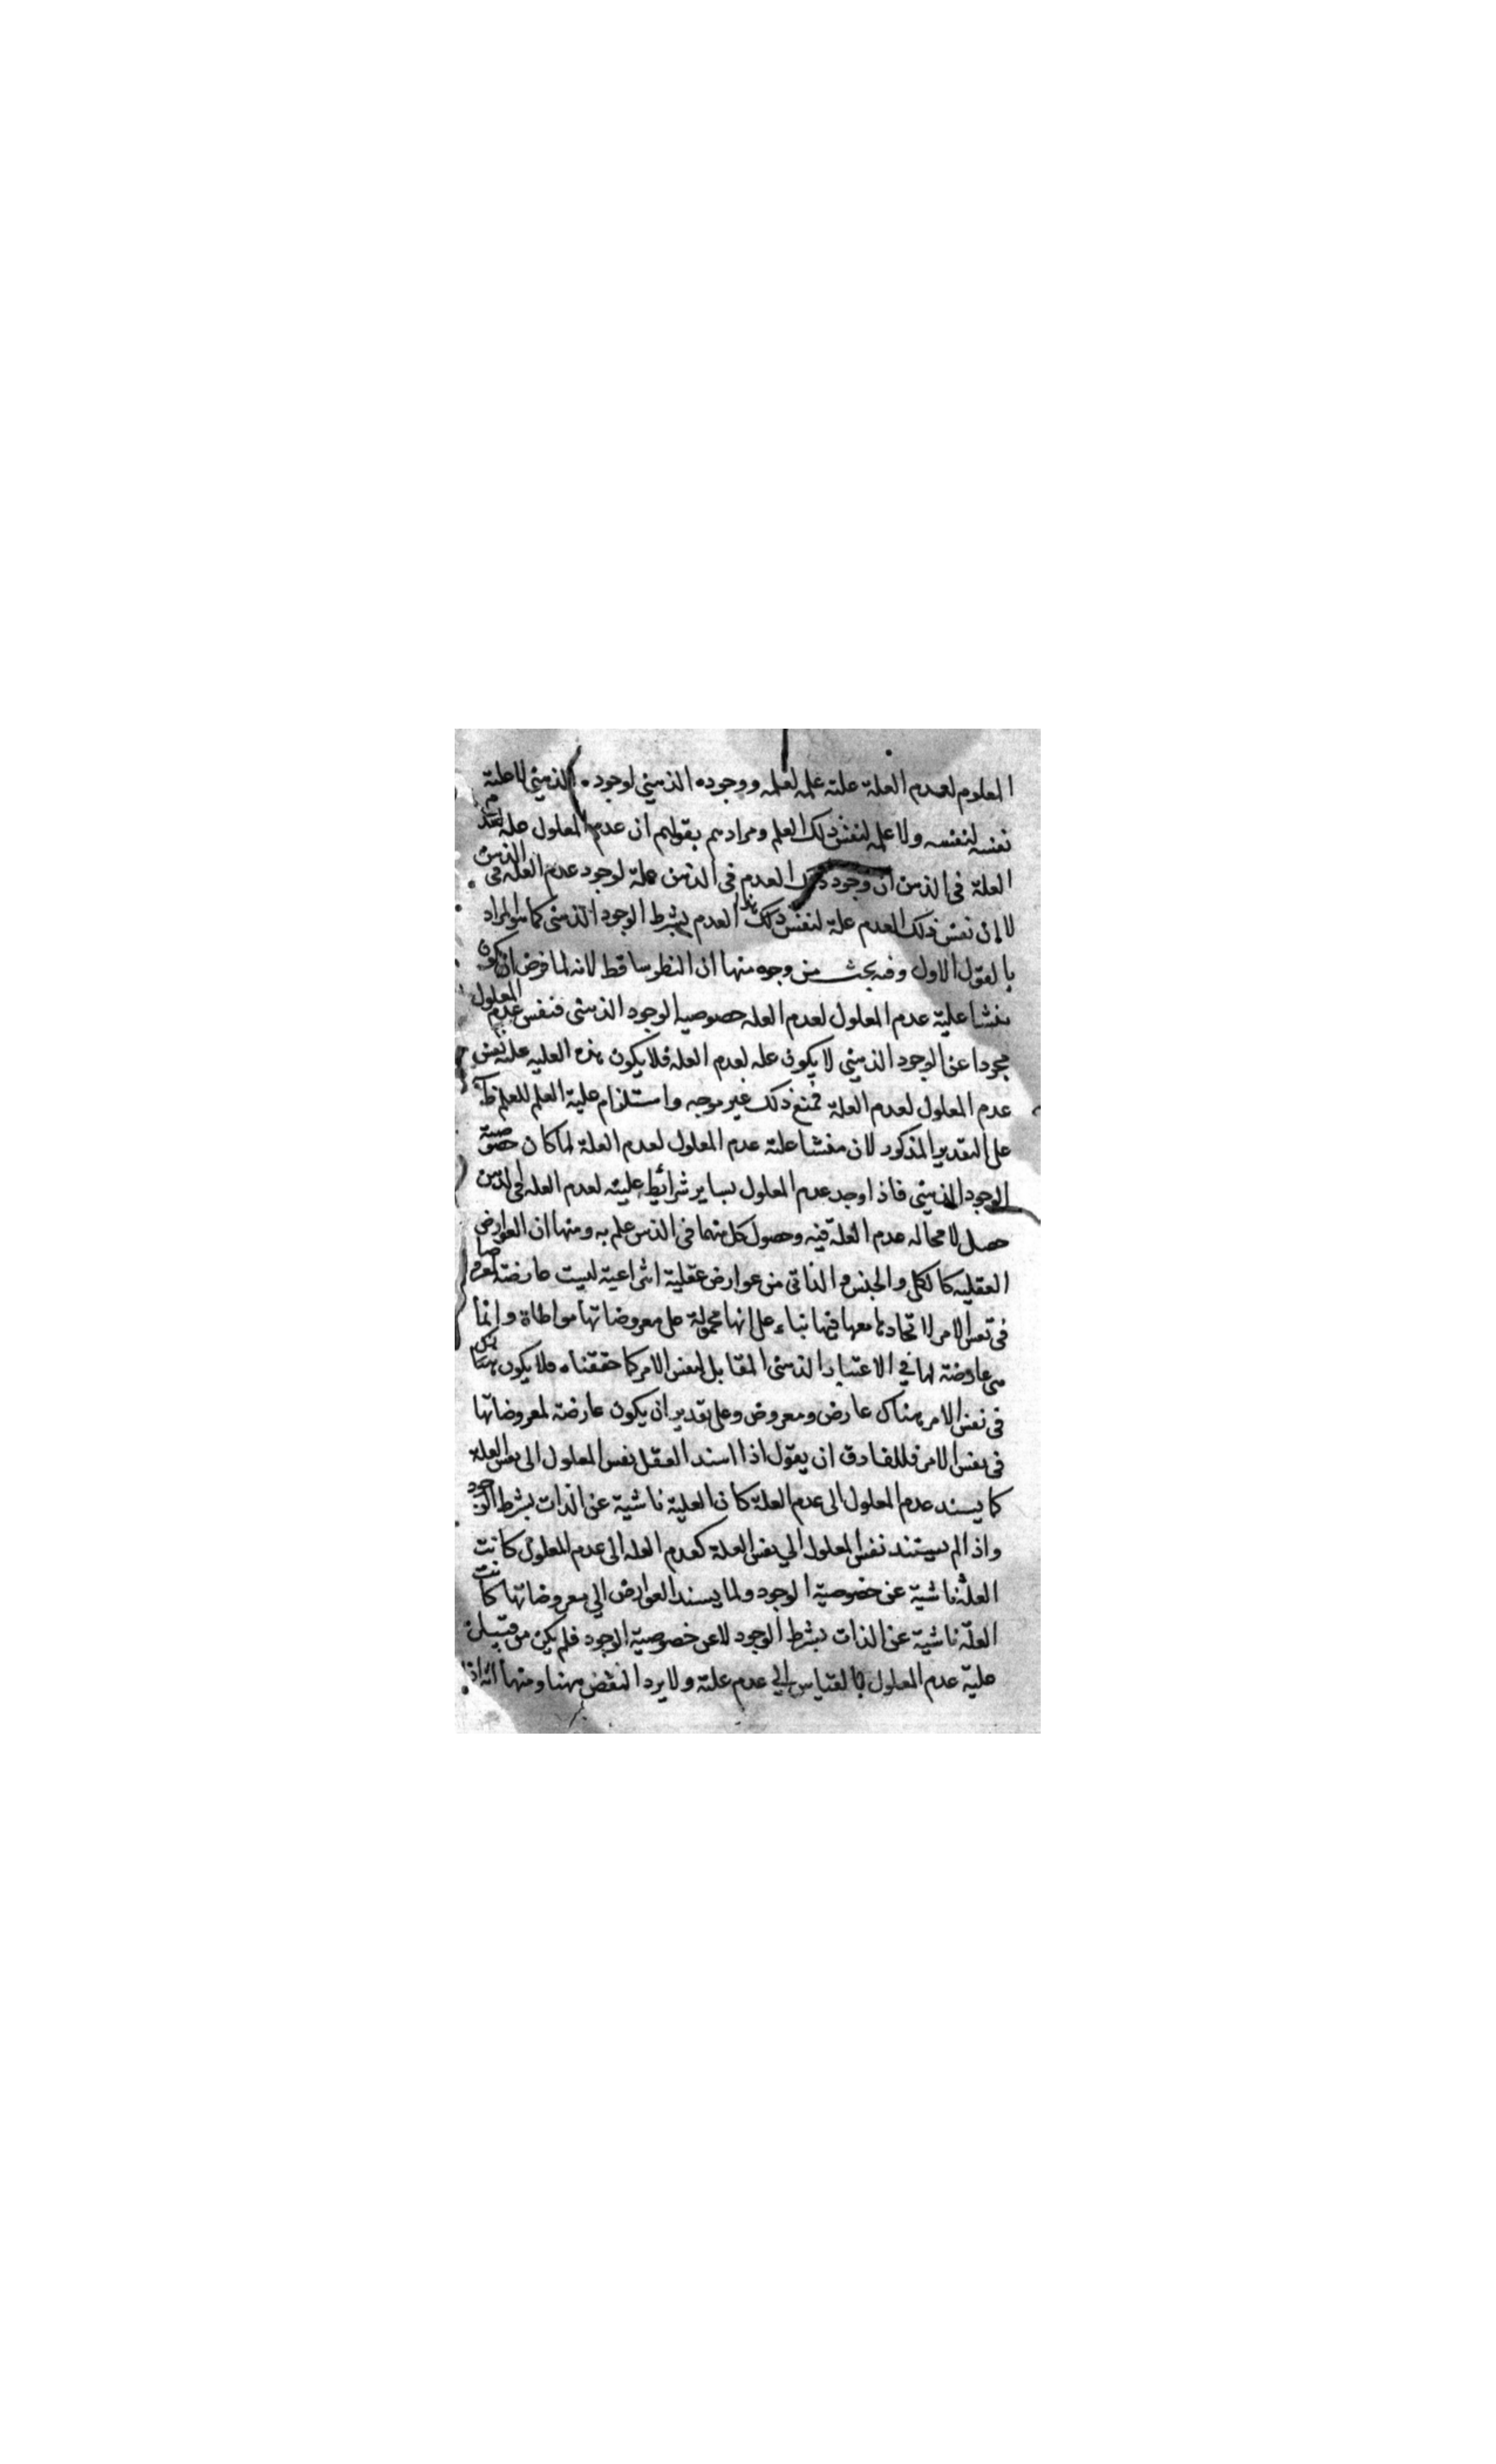 المعلوم لعدم العلة علته علمه لعلمه ووجوده الذهني لوجوده الذهني لا علية
نفسه لنفسه ولا علمه لنفس ذلك العلم ومرادهم بقولهم ان عدم المعلول علة لعدم
العلة في الذهن ان وجود ذلك العدم في الذهن علة لوجود عدم العلة في الذهن
لا ان نفس ذلك العدم علة لنفس ذلك العدم بشرط الوجود الذهني كما هو المراد
بالقول الاول وفيه بحث من وجوه منها ان النظر ساقط لانه لما فرض ان يكون
منشا علية عدم المعلول لعدم العلة خصوصية الوجود الذهني فنفس عدم المعلول
مجردا عن الوجود الذهني لا يكون علة لعدم العلة فلا يكون هذه العلية علية نفس
عدم المعلول لعدم العلة فمنع ذلك غير موجه واستلزام علية العلم للعلم ظ
على التقدير المذكور لان منشا علية عدم المعلول لعدم العلة لما كان خصوصية
الوجود الذهني فاذا وجد عدم المعلول بساير شرائط عليته لعدم العلة في الذهن
حصل لا محالة عدم العلة فيه وحصول كل منهما في الذهن علم به ومنها ان العوارض
العقلية كالكلي والجنس والذاتي من عوارض عقلية انتزاعية ليست عارضة لمعروضاتها
في نفس الامر لاتحادها معها فيها بناء على انها محمولة على معروضاتها مواطاة وانما
هي عارضة لها في الاعتبار الذهني المقابل لنفس الامر كما حققناه فلا يكون هناك
في نفس الامر هناك عارض ومعروض وعلى تقدير ان يكون عارضة لمعروضاتها
في نفس الامر فللفارق ان يقول اذا اسند العقل نفس المعلول الى نفس العلة
كما يسند عدم المعلول الى عدم العلة كان العلية ناشية عن الذات بشرط الوجود
واذا لم يستند نفس المعلول الى نفس العلة كعدم العلة الى عدم المعلول كانت
العلة ناشية عن خصوصية الوجود ولما يسند العوارض الى معروضاتها كانت
العلة ناشية عن الذات بشرط الوجود لا عن خصوصية الوجود فلم يكن من قبيل
علية عدم المعلول بالقياس الى عدم علته ولا يرد النقض بهنا ومنها انه اذا